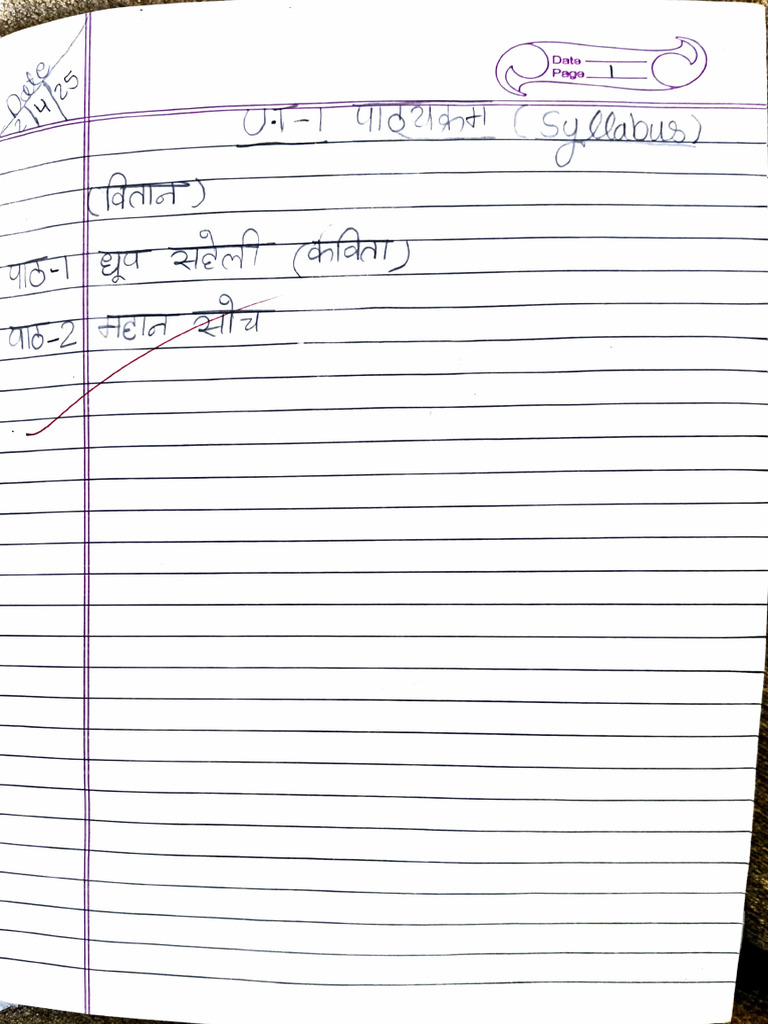 Date
2/4/25
Date
Page 1
U.T-1 पाठ्यक्रम (Syllabus)
(वितान)
पाठ-1 धूप सहेली (कविता)
पाठ-2 महान सोच